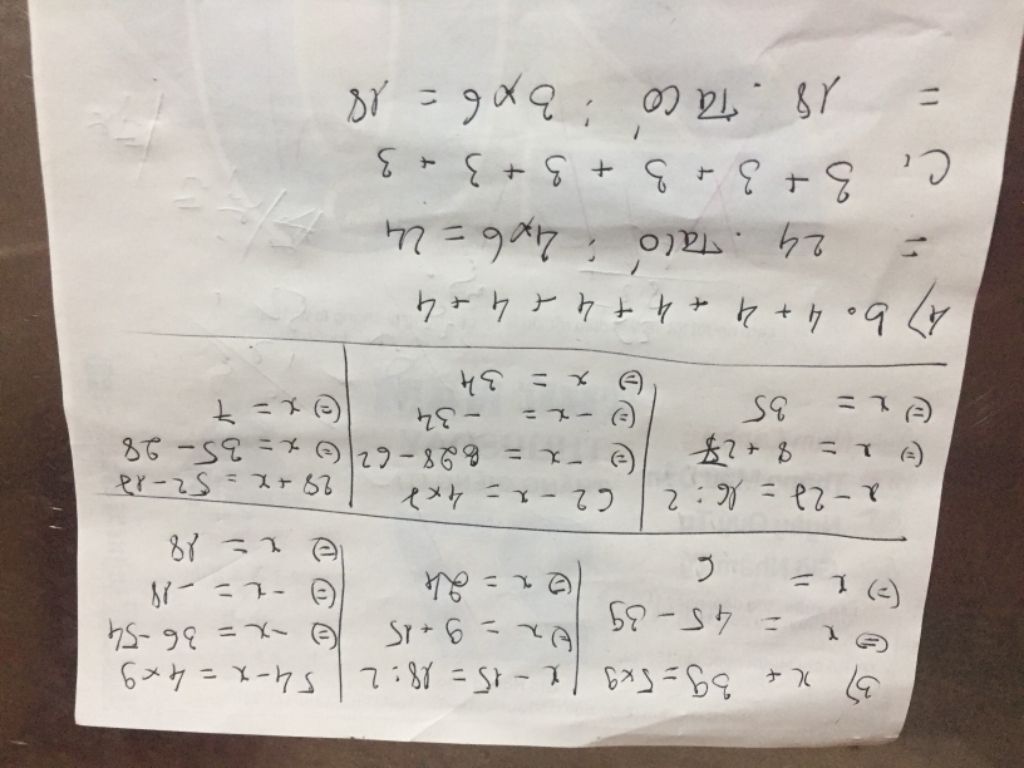 3) x + 39 = 5x9
(=) x = 45 - 39
(=) x = 6
x - 15 = 18 : 2
(=) x = 9 + 15
(=) x = 24
54 - x = 4x9
(=) -x = 36 - 54
(=) -x = -18
(=) x = 18
x - 27 = 16 : 2
(=) x = 8 + 27
(=) x = 35
62 - x = 4x7
(=) -x = 28 - 62
(=) -x = -34
(=) x = 34
28 + x = 52 - 17
(=) x = 35 - 28
(=) x = 7
4) b. 4 + 4 + 4 + 4 + 4 + 4
= 24. Ta có : 4x6 = 24
C, 3 + 3 + 3 + 3 + 3 + 3
= 18. Ta có : 3x6 = 18